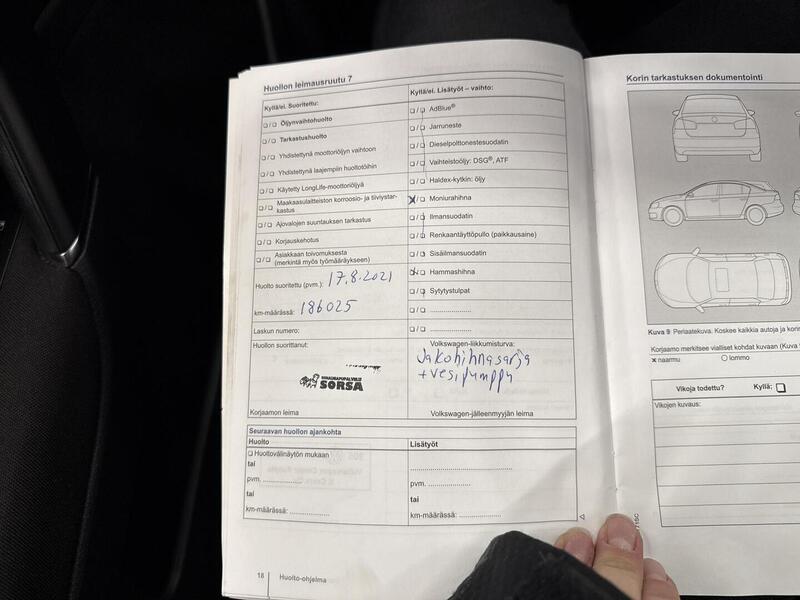 Huollon leimausruutu 7
Kyllä/ei. Suoritettu:
Öljynvaihtohuolto
Tarkastushuolto
Yhdistettynä moottoriöljyn vaihtoon
Yhdistettynä laajempiin huoltotöihin
Käytetty LongLife-moottoriöljyä
Maakaasulaitteiston korroosio- ja tiiviystar-
kastus
Ajovalojen suuntauksen tarkastus
Korjauskehotus
Asiakkaan toivomuksesta
(merkintä myös työmääräykseen)
Huolto suoritettu (pvm.): 17.8.2021
km-määrässä: 186025
Laskun numero:
Huollon suorittanut:
SORSA
Korjaamon leima
Kyllä/ei. Lisätyöt – vaihto:
AdBlue®
Jarruneste
Dieselpolttonestesuodatin
Vaihteistoöljy: DSG®, ATF
Haldex-kytkin: öljy
Moniurahihna
Ilmansuodatin
Renkaantäyttöpullo (paikkausaine)
Sisäilmansuodatin
Hammashihna
Sytytystulpat
Volkswagen-liikkumisturva:
Jakohihnasarja
+vesipumppu
Volkswagen-jälleenmyyjän leima
Seuraavan huollon ajankohta
Huolto
Huoltovälinäytön mukaan
tai
pvm.
tai
km-määrässä:
Lisätyöt
pvm.
tai
km-määrässä:
18 Huolto-ohjelma
Korin tarkastuksen dokumentointi
Kuva 9 Periaatekuva. Koskee kaikkia autoja ja
Korjaamo merkitsee vialliset kohdat kuvaan (Kuva
x naarmu
lommo
Vikoja todettu? Kyllä:
Vikojen kuvaus: